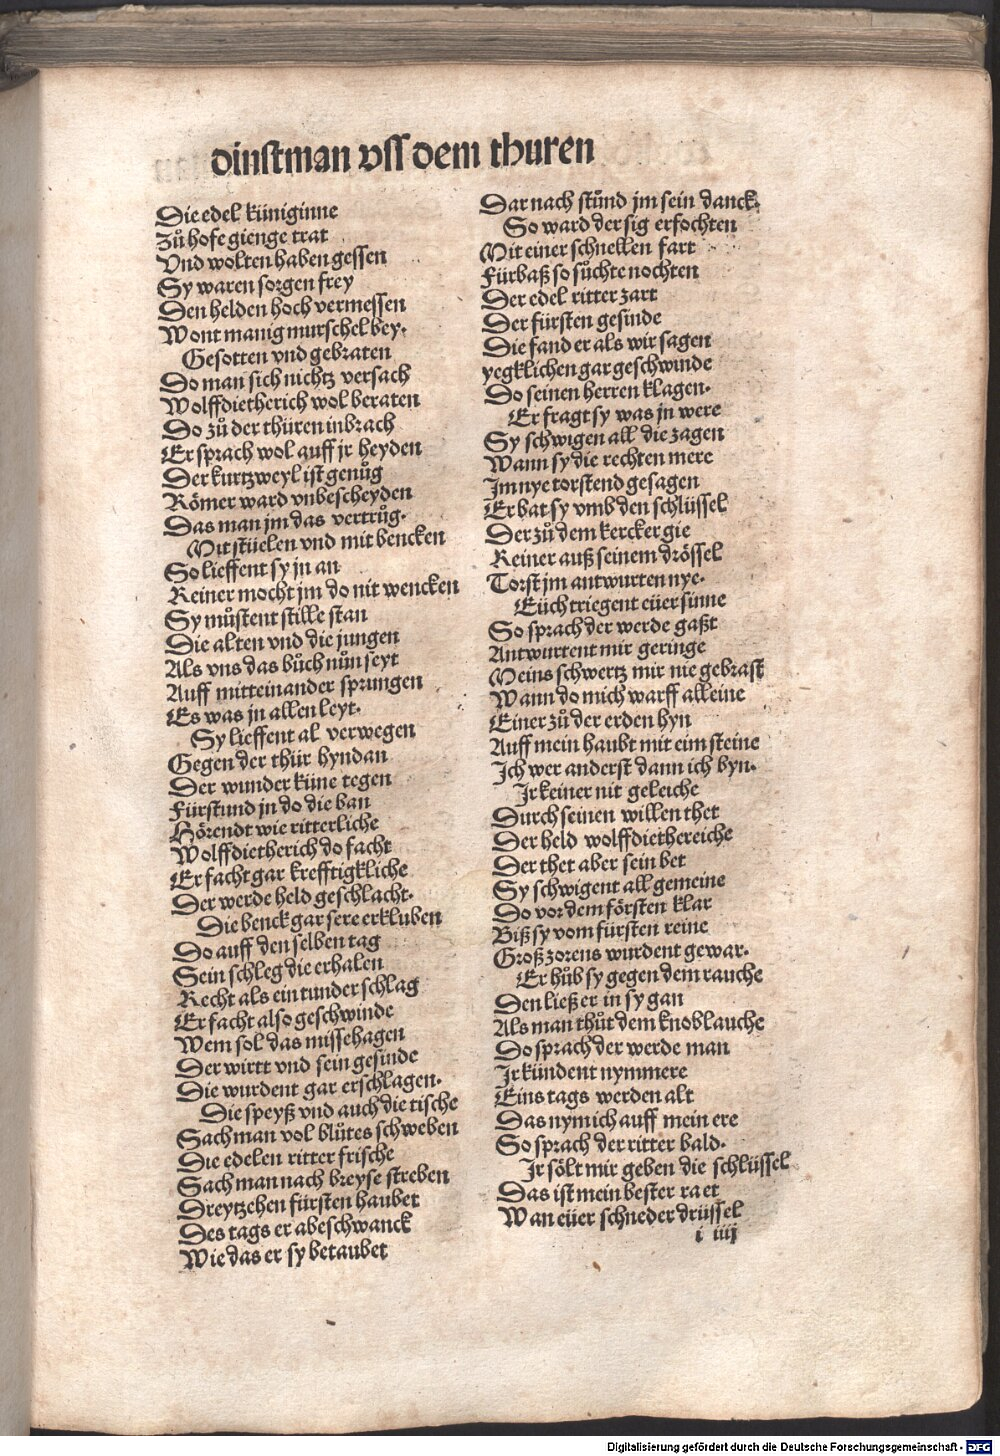 dinstman vff dem thuren
Die edel küniginne
Zů hofe gienge trat
Vnd wolten haben gessen
Sy waren sorgen frey
Den helden hoch vermessen
Wont manig murschel bey.
Gesotten vnd gebraten
Do man sich nichtz versach
Wolffdietherich wol beraten
Do zů der thüren inbrach
Er sprach wol auff jr heyden
Der kurtzweyl ist genůg
Römer ward vnbescheyden
Das man jm das vertrůg.
Mit stüelen vnd mit bencken
So lieffent sy jn an
Keiner mocht jm do nit wencken
Sy můstent stille stan
Die alten vnd die jungen
Als vns das bůch nůn seyt
Auff mitteinander sprungen
Es was jn allen leyt.
Sy lieffent al verwegen
Gegen der thür hyndan
Der wunder küne tegen
Fürstund jn do die ban
Hörendt wie ritterliche
Wolffdietherich do facht
Er facht gar krefftigkliche
Der werde held geschlacht.
Die benck gar sere erkluben
Do auff den selben tag
Sein schleg die erhalen
Recht als ein tunder schlag
Er facht also geschwinde
Wem sol das missehagen
Der wirtt vnd sein gesinde
Die wurdent gar erschlagen.
Die speyß vnd auch die tische
Sach man vol blůtes schweben
Die edelen ritter frische
Sach man nach breyse streben
Dreytzehen fürsten haubet
Des tags er abeschwanck
Wie das er sy betaubet
Dar nach stůnd jm sein danck.
So ward der sig erfochten
Mit einer schnellen fart
Fürbaß so sůchte nochten
Der edel ritter zart
Der fürsten gesinde
Die fand er als wir sagen
yegklichen gar geschwinde
Do seinen herren klagen.
Er fragt sy was jn were
Sy schwigen all die zagen
Wann sy die rechten mere
Im nye torstend gesagen
Er bat sy vmb den schlüssel
Der zů dem kercker gie
Keiner auß seinem drössel
Torst jm antwurten nye.
Eüch triegent eüer sinne
So sprach der werde gaßt
Antwurtent mir geringe
Meins schwertz mir nie gebrast
Wann do mich warff alleine
Einer zů der erden hyn
Auff mein haubt mit eim steine
Ich wer anderst dann ich byn.
Ir keiner nit geleiche
Durch seinen willen thet
Der held wolffdiethereiche
Der thet aber sein bet
Sy schwigent all gemeine
Do vor dem försten klar
Biß sy vom fürsten reine
Groß zorens wurdent gewar.
Er hůb sy gegen dem rauche
Den ließ er in sy gan
Als man thůt dem knoblauche
Do sprach der werde man
Ir kündent nymmere
Eins tags werden alt
Das nym ich auff mein ere
So sprach der ritter bald.
Ir sölt mir geben die schlüssel
Das ist mein bester raet
Wan eüer schneder drüssel
i iiij
Digitalisierung gefördert durch die Deutsche Forschungsgemeinschaft - DFG